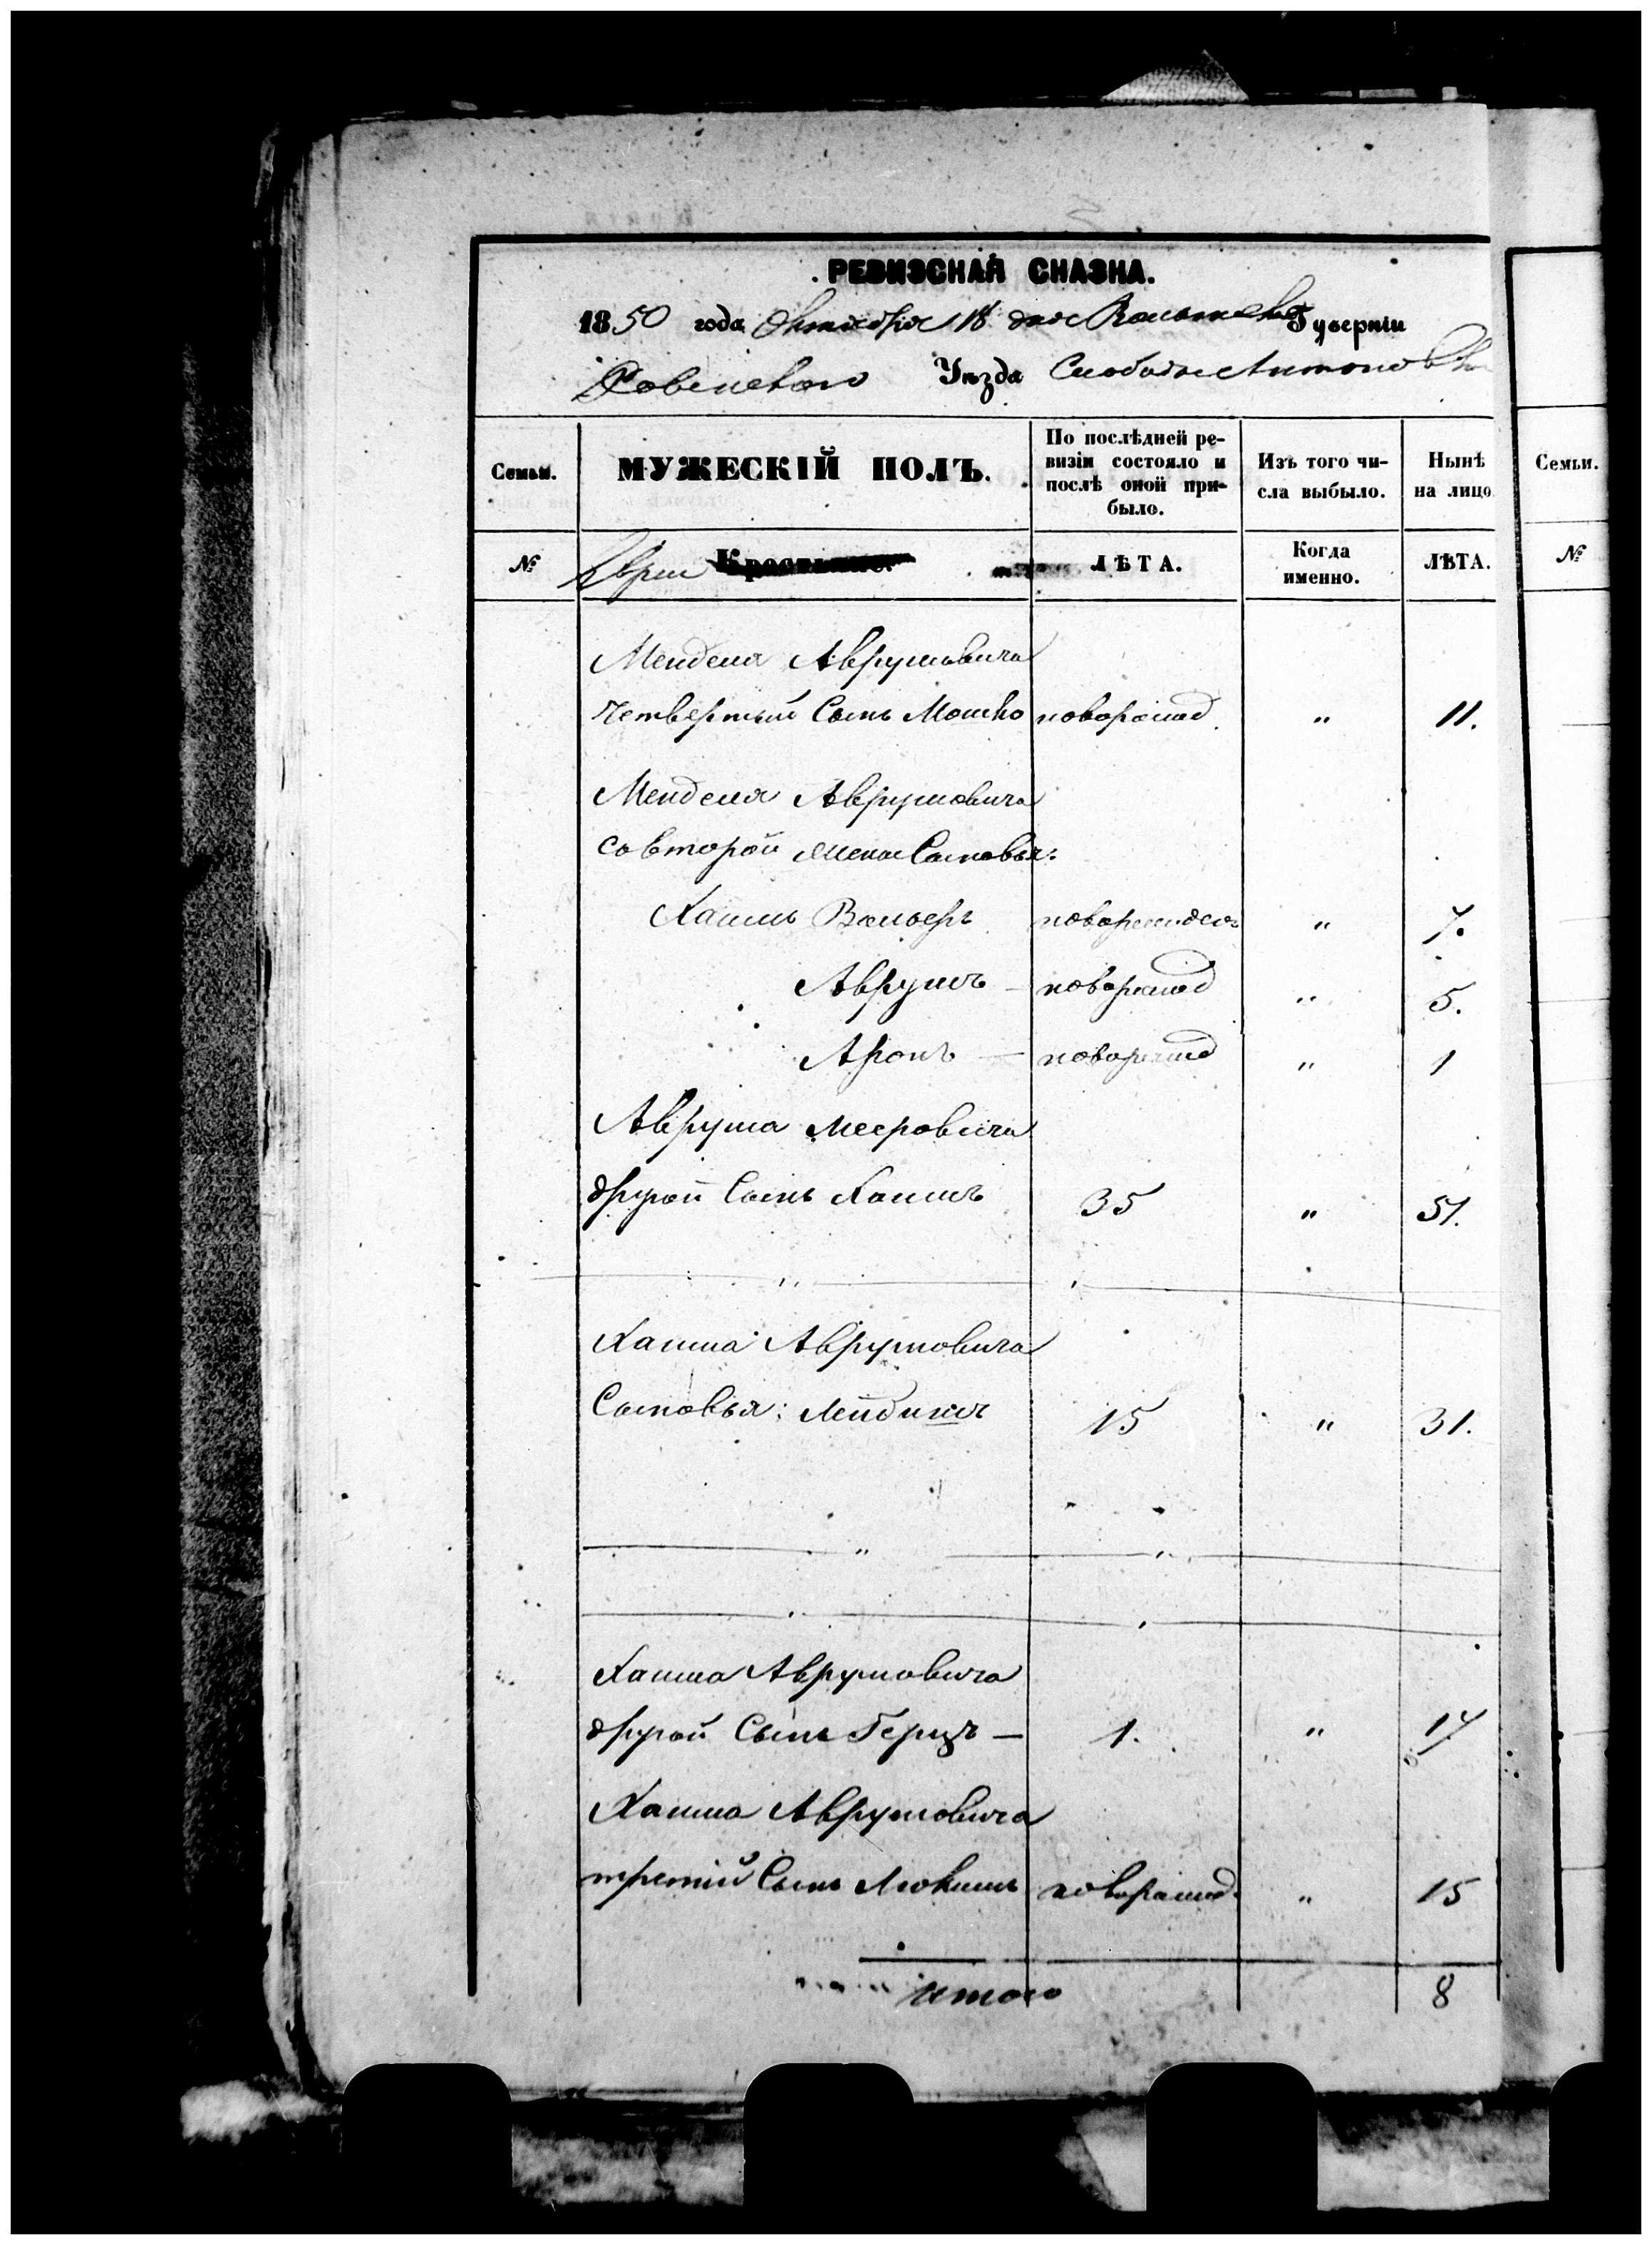 РЕВИЗСКАЯ СКАЗКА.
1850 года Октября 18 дня Волынской Губерніи
Ровенскаго Уѣзда Слободы Антоновки
Семьи.
МУЖЕСКІЙ ПОЛЪ.
По послѣдней ре-
визіи состояло и
послѣ оной при-
было.
Изъ того чи-
сла выбыло.
Нынѣ
на лицо
Семьи.
№
Евреи Крестьяне.
ЛѢТА.
Когда
именно.
ЛѢТА.
№
Менделя Аврумовича
четвертый Сынъ Мошко новорожд. " 11.
Менделя Аврумовича
со второй жены Сыновья:
Хаимъ Вольфъ " 7.
Аврумъ – новорожд " 5.
Аронъ – новорожд " 1
Аврума Мееровича
другой Сынъ Хаимъ 35 " 51.
Хаима Аврумовича
Сыновья: 15 " 31.
Хаима Аврумовича
другой Сынъ Герцъ – 1. " 17
Хаима Аврумовича
третій Сынъ новорожд. " 15
итого 8